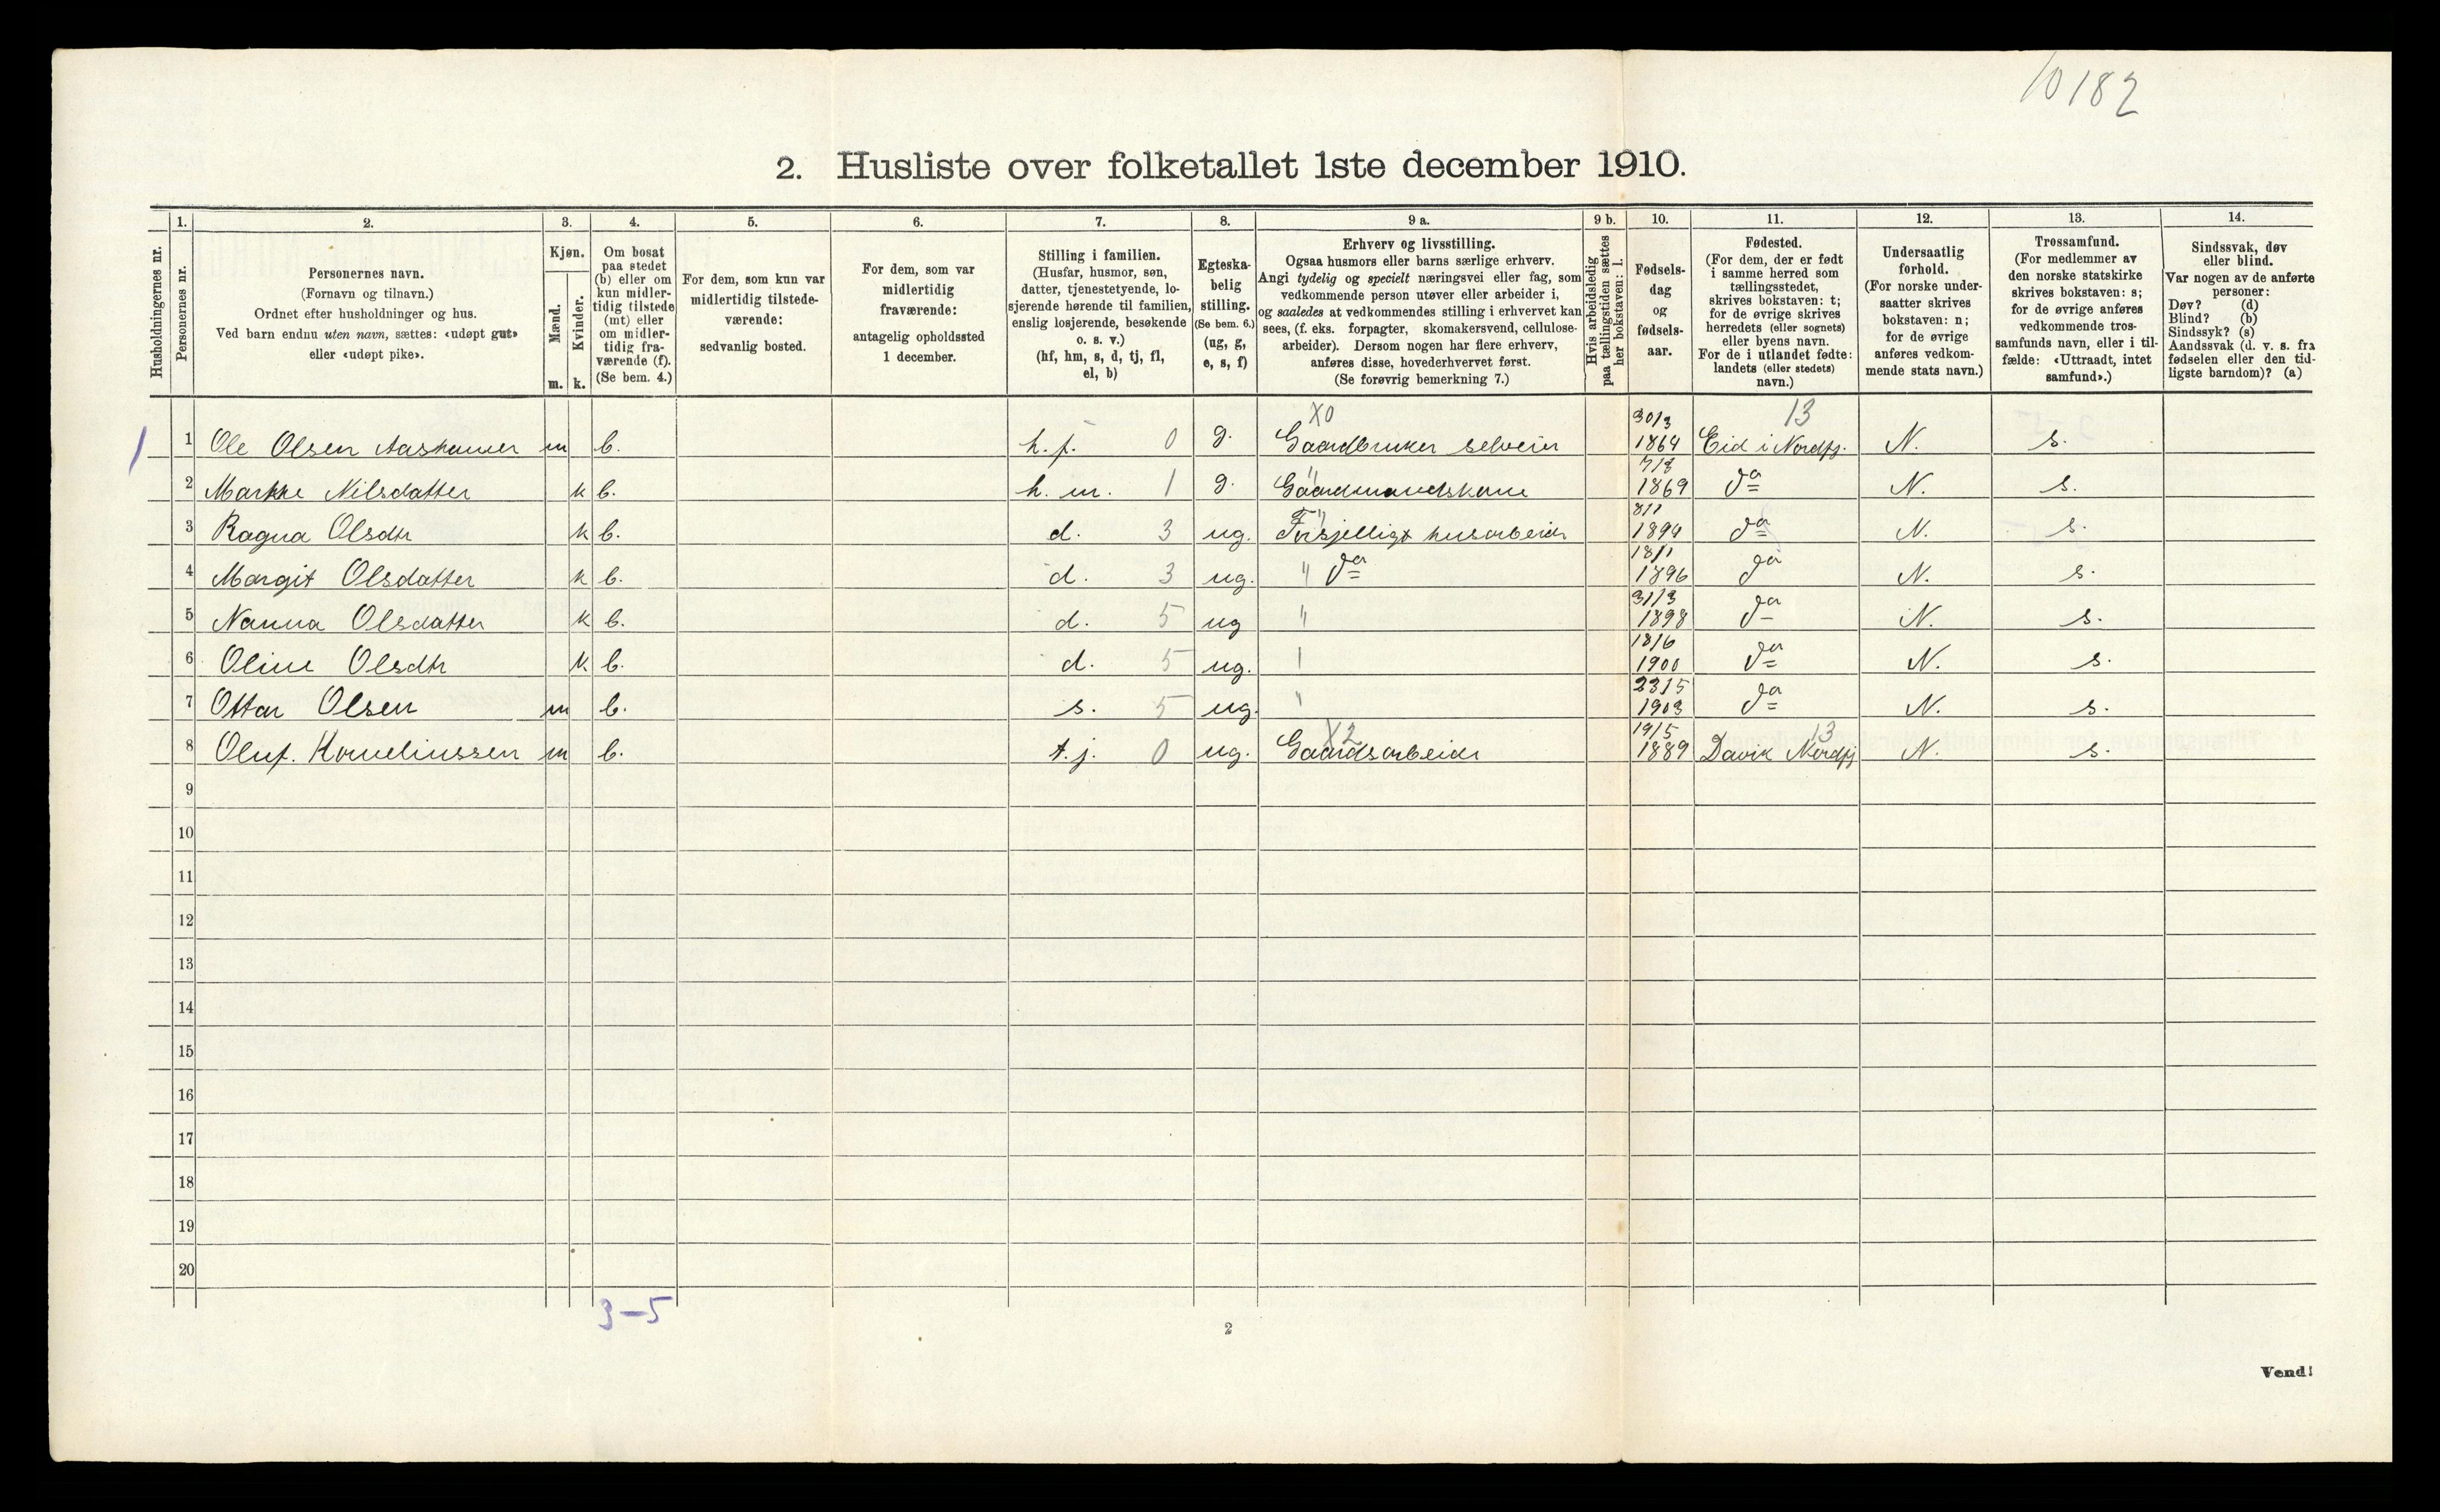 10182
2. Husliste over folketallet 1ste december 1910.
Husholdningernes nr.
1.
Personernes nr.
2.
Personernes navn.
(Fornavn og tilnavn.)
Ordnet efter husholdninger og hus.
Ved barn endnu uten navn, sættes: «udøpt gut»
eller «udøpt pike».
3.
Kjøn.
Mænd.
m.
Kvinder.
k.
4.
Om bosat
paa stedet
(b) eller om
kun midler-
tidig tilstede
(mt) eller
om midler-
tidig fra-
værende (f).
(Se bem. 4.)
5.
For dem, som kun var
midlertidig tilstede-
værende:
sedvanlig bosted.
6.
For dem, som var
midlertidig
fraværende:
antagelig opholdssted
1 december.
7.
Stilling i familien.
(Husfar, husmor, søn,
datter, tjenestetyende, lo-
sjerende hørende til familien,
enslig losjerende, besøkende
o. s. v.)
(hf, hm, s, d, tj, fl,
el, b)
8.
Egteska-
belig
stilling.
(Se bem. 6.)
(ug, g,
e, s, f)
9 a.
Erhverv og livsstilling.
Ogsaa husmors eller barns særlige erhverv.
Angi tydelig og specielt næringsvei eller fag, som
vedkommende person utøver eller arbeider i,
og saaledes at vedkommendes stilling i erhvervet kan
sees, (f. eks. forpagter, skomakersvend, cellulose-
arbeider). Dersom nogen har flere erhverv,
anføres disse, hovederhvervet først.
(Se forøvrig bemerkning 7.)
9 b.
Hvis arbeidsledig
paa tællingstiden sættes
her bokstaven: l.
10.
Fødsels-
dag
og
fødsels-
aar.
11.
Fødested.
(For dem, der er født
i samme herred som
tællingsstedet,
skrives bokstaven: t;
for de øvrige skrives
herredets (eller sognets)
eller byens navn.
For de i utlandet fødte:
landets (eller stedets)
navn.)
12.
Undersaatlig
forhold.
(For norske under-
saatter skrives
bokstaven: n;
for de øvrige
anføres vedkom-
mende stats navn.)
13.
Trossamfund.
(For medlemmer av
den norske statskirke
skrives bokstaven: s;
for de øvrige anføres
vedkommende tros-
samfunds navn, eller i til-
fælde: «Uttraadt, intet
samfund».)
14.
Sindssvak, døv
eller blind.
Var nogen av de anførte
personer:
Døv? (d)
Blind? (b)
Sindssyk? (s)
Aandssvak (d. v. s. fra
fødselen eller den tid-
ligste barndom)? (a)
X0 30/3 13
1 1 Ole Olsen m b. h. f. 0 g. Gaardbruker selveier 1864 Eid i Nordfj. N. s.
2 Nilsdatter k b. h. m. 1 g. Gaardmandskone 1869 da N. s.
3 Ragna Olsdtr k b. d. 3 ug. husarbeide 1894 da N. s.
18/1
4 Margit Olsdatter k b. d. 3 ug. " da 1896 da N. s.
31/3
5 Nanna Olsdatter k b. d. 5 ug " 1898 da N. s.
18/6
6 Oline Olsdtr k b. d. 5 ug. 1900 da N. s.
23/5
7 Ottar Olsen m b. s. 5 ug. " 1903 da N. s.
X2 19/5 13
8 Oluf. Korneliussen m b. t.j. 0 ug. Gaardsarbeide 1889 Davik Nordfj N. s.
9
10
11
12
13
14
15
16
17
18
19
20
3-5
2
Vend!